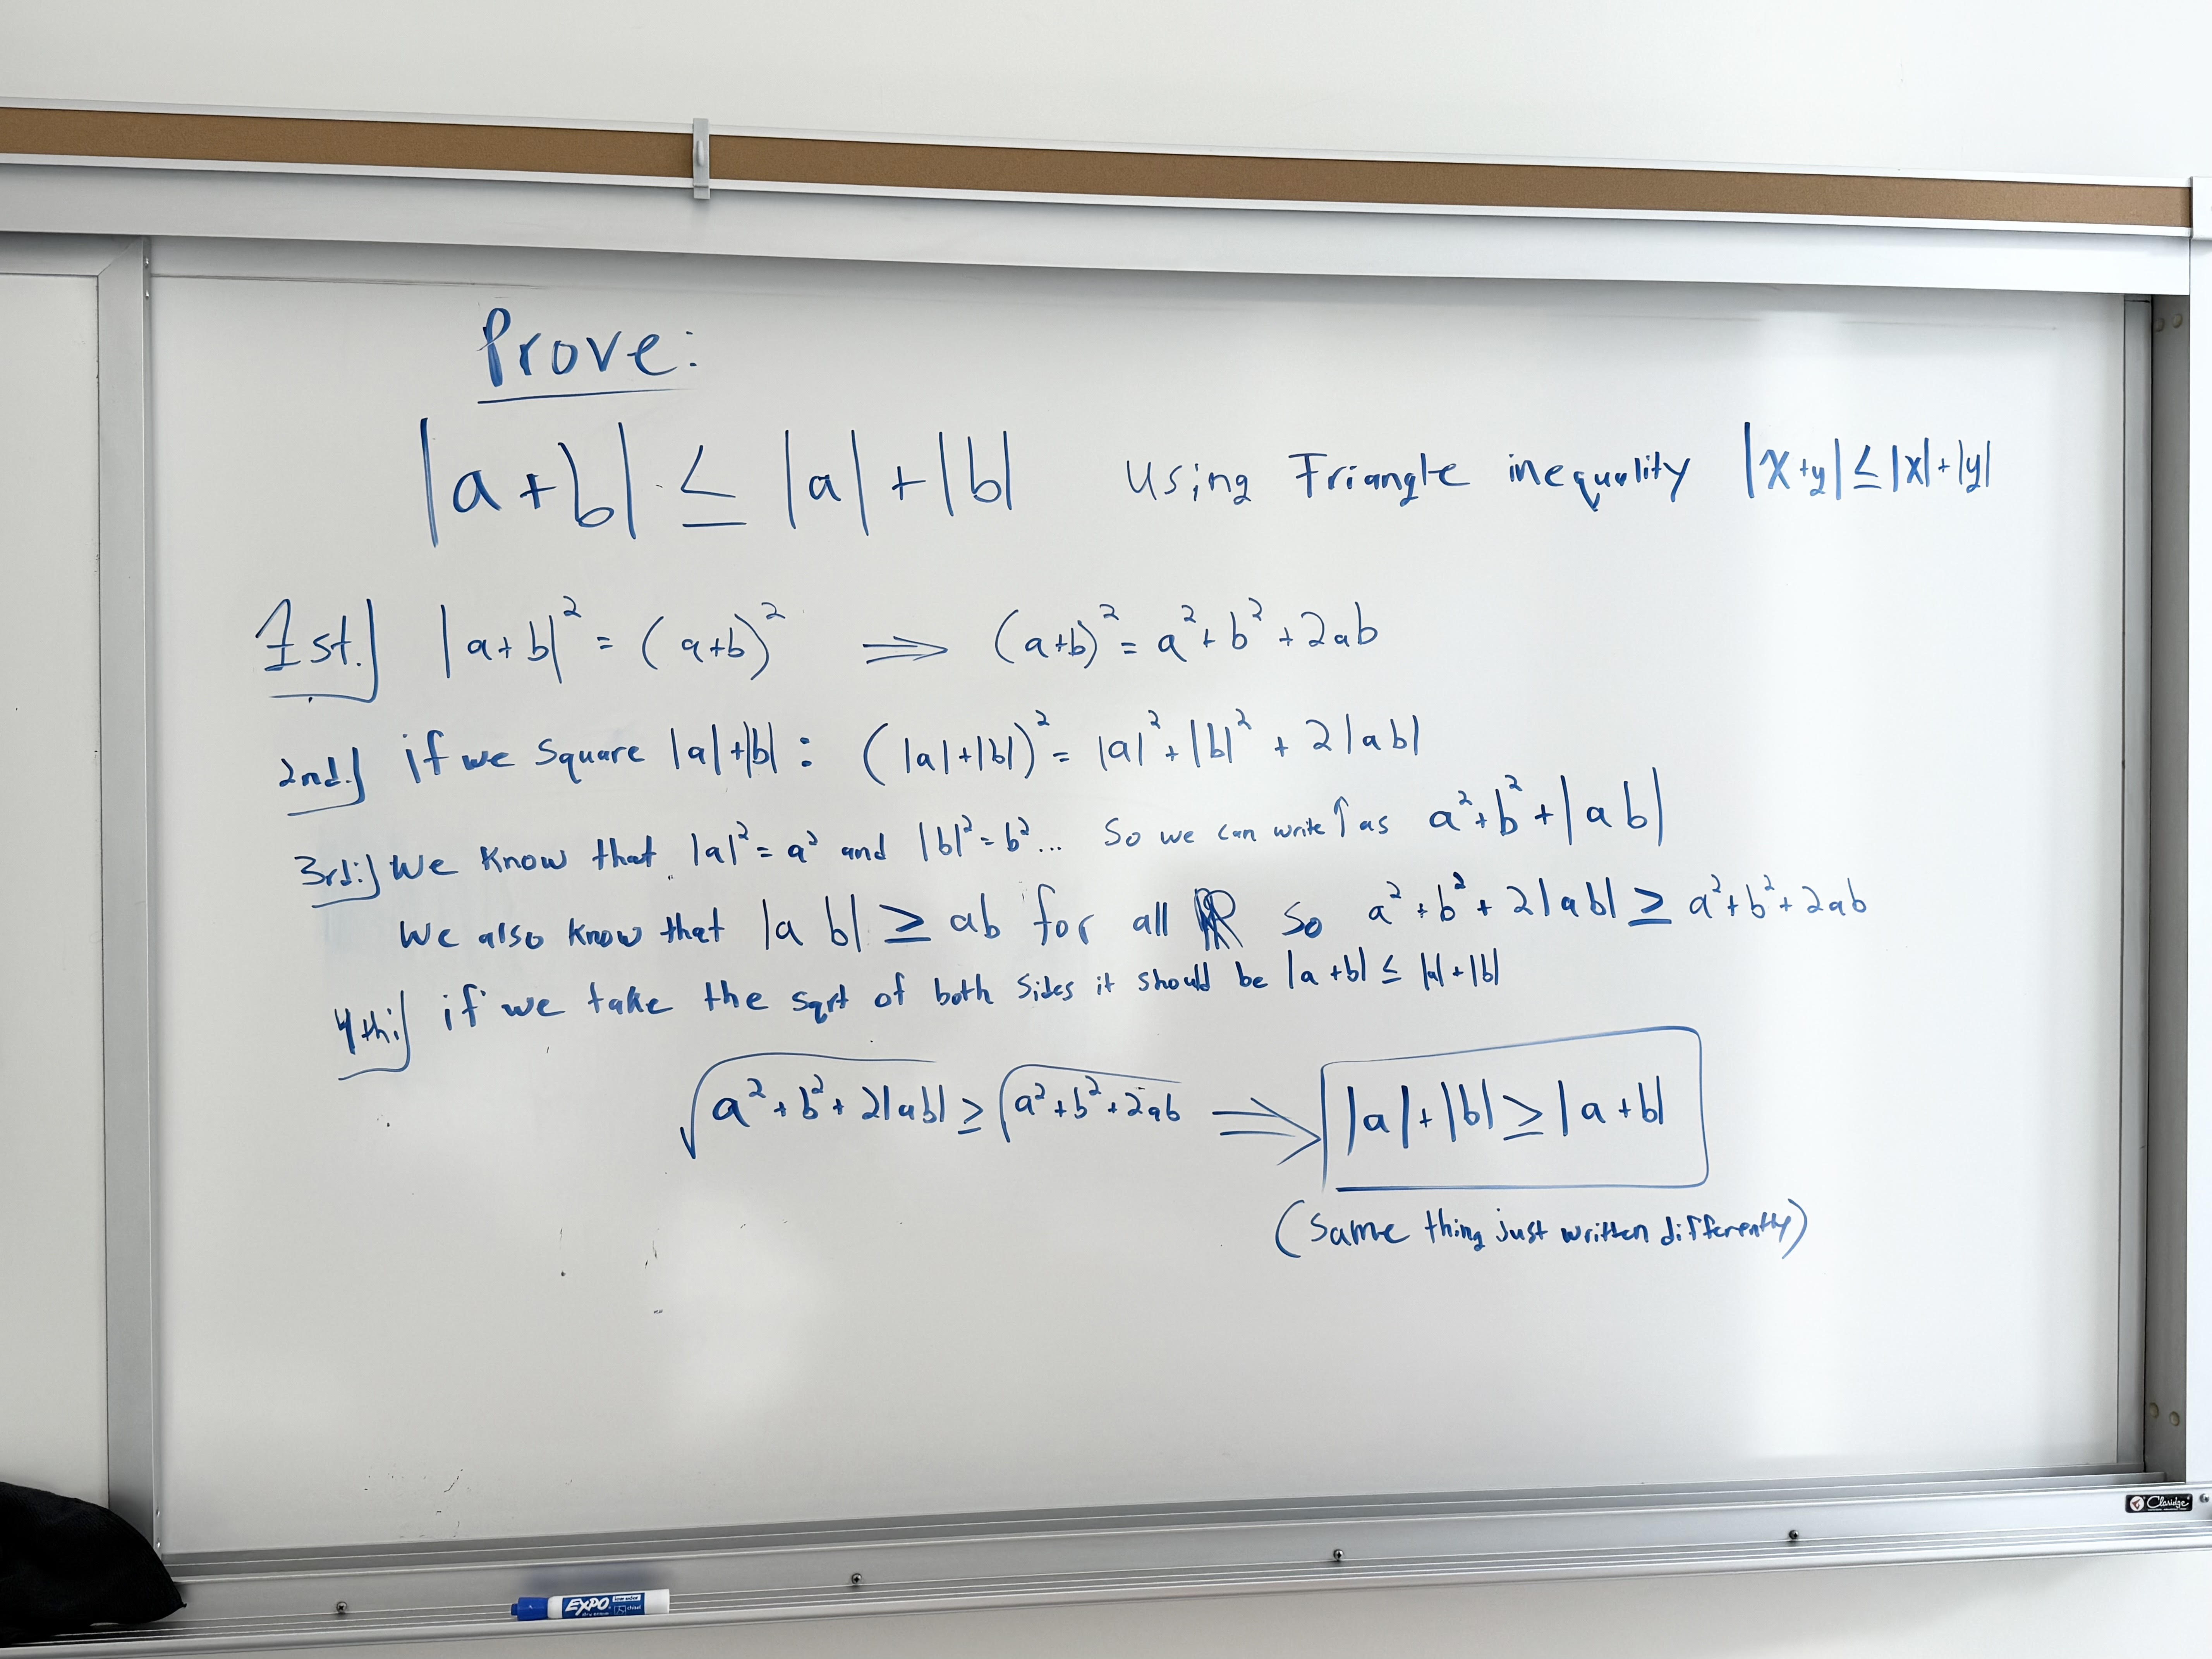 Prove:
|a+b| ≤ |a|+|b| Using Triangle inequality |x+y| ≤ |x|+|y|
1st.] |a+b|² = (a+b)² ⟹ (a+b)² = a²+b²+2ab
2nd.] if we square |a|+|b| : (|a|+|b|)² = |a|²+|b|² + 2|ab|
3rd:] We know that |a|² = a² and |b|² = b²... So we can write ↑ as a²+b²+|ab|
We also know that |ab| ≥ ab for all ℝ so a²+b²+2|ab| ≥ a²+b²+2ab
4th:] if we take the sqrt of both sides it should be |a+b| ≤ |a|+|b|
√a²+b²+2|ab| ≥ √a²+b²+2ab ⟹ |a|+|b| ≥ |a+b|
(Same thing just written differently)
Claridge
EXPO